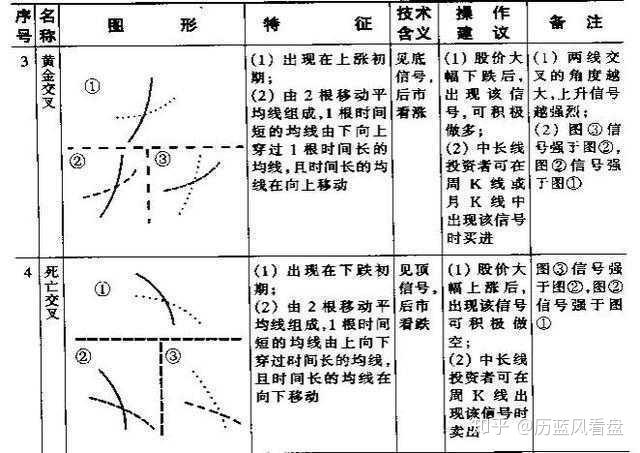 序号
名称
图 形
特 征
技术含义
操作建议
备 注
3
黄金交叉
①
②
③
(1) 出现在上涨初
期；
(2) 由 2 根移动平
均线组成，1 根时间
短的均线由下向上
穿过 1 根时间长的
均线，且时间长的均
线在向上移动
见底
信号，
后市
看涨
(1) 股价大
幅下跌后，
出现该信
号，可积极
做多；
(2) 中长线
投资者可在
周 K 线或
月 K 线中
出现该信号
时买进
(1) 两线交
叉的角度越
大，上升信号
越强烈；
(2) 图③信
号强于图②，
图②信号强
于图①
4
死亡交叉
①
②
③
(1) 出现在下跌初
期；
(2) 由 2 根移动平
均线组成，1 根时间
短的均线由上向下
穿过时间长的均线，
且时间长的均线在
向下移动
见顶
信号，
后市
看跌
(1) 股价大
幅上涨后，
出现该信号
可积极做
空；
(2) 中长线
投资者可在
周 K 线出
现该信号时
卖出
图③信号强
于图②，图②
信号强于图
①
知乎 @历蓝风看盘